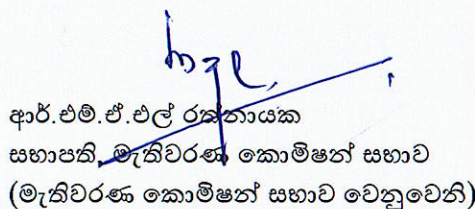 ආර්.එම්.ඒ.එල් රත්නායක
සභාපති, මැතිවරණ කොමිෂන් සභාව
(මැතිවරණ කොමිෂන් සභාව වෙනුවෙනි)